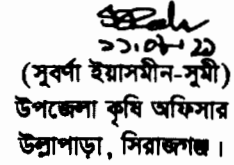 (সুবর্ণা ইয়াসমীন-সুমী)
উপজেলা কৃষি অফিসার
উল্লাপাড়া, সিরাজগঞ্জ।